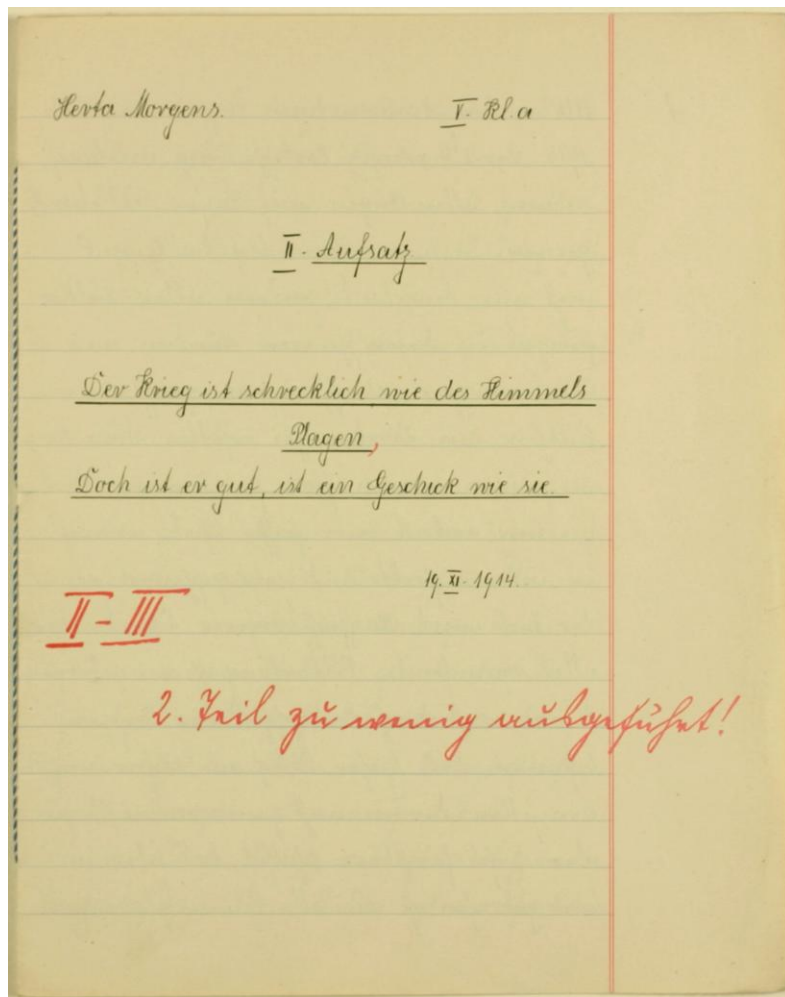 Herta Morgens. V. Kl. a
II. Aufsatz
Der Krieg ist schrecklich wie des Himmels
Plagen,
Doch ist er gut, ist ein Geschick wie sie.
19. XI. 1914.
II-III
2. Teil zu wenig ausgeführt!